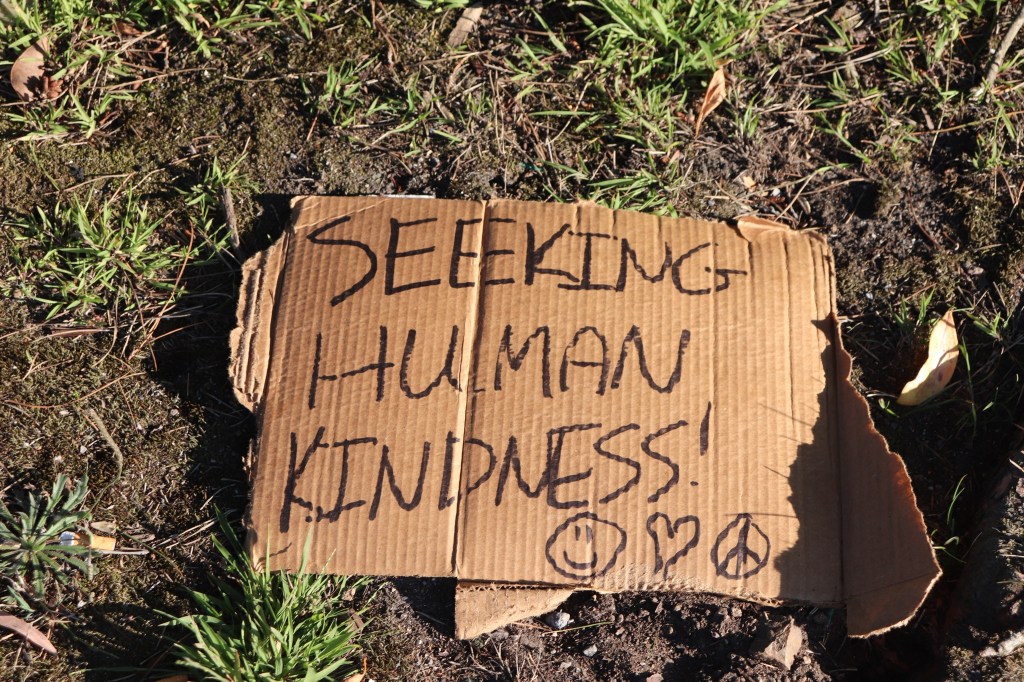 SEEKING
HUMAN
KINDNESS!